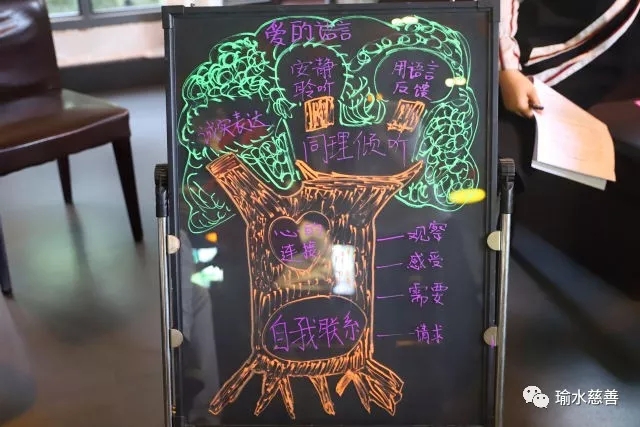 爱的语言
安静
聆听
用语言
反馈
诚实表达
同理倾听
心的
连接
观察
感受
需要
请求
自我联系
瑜水慈善